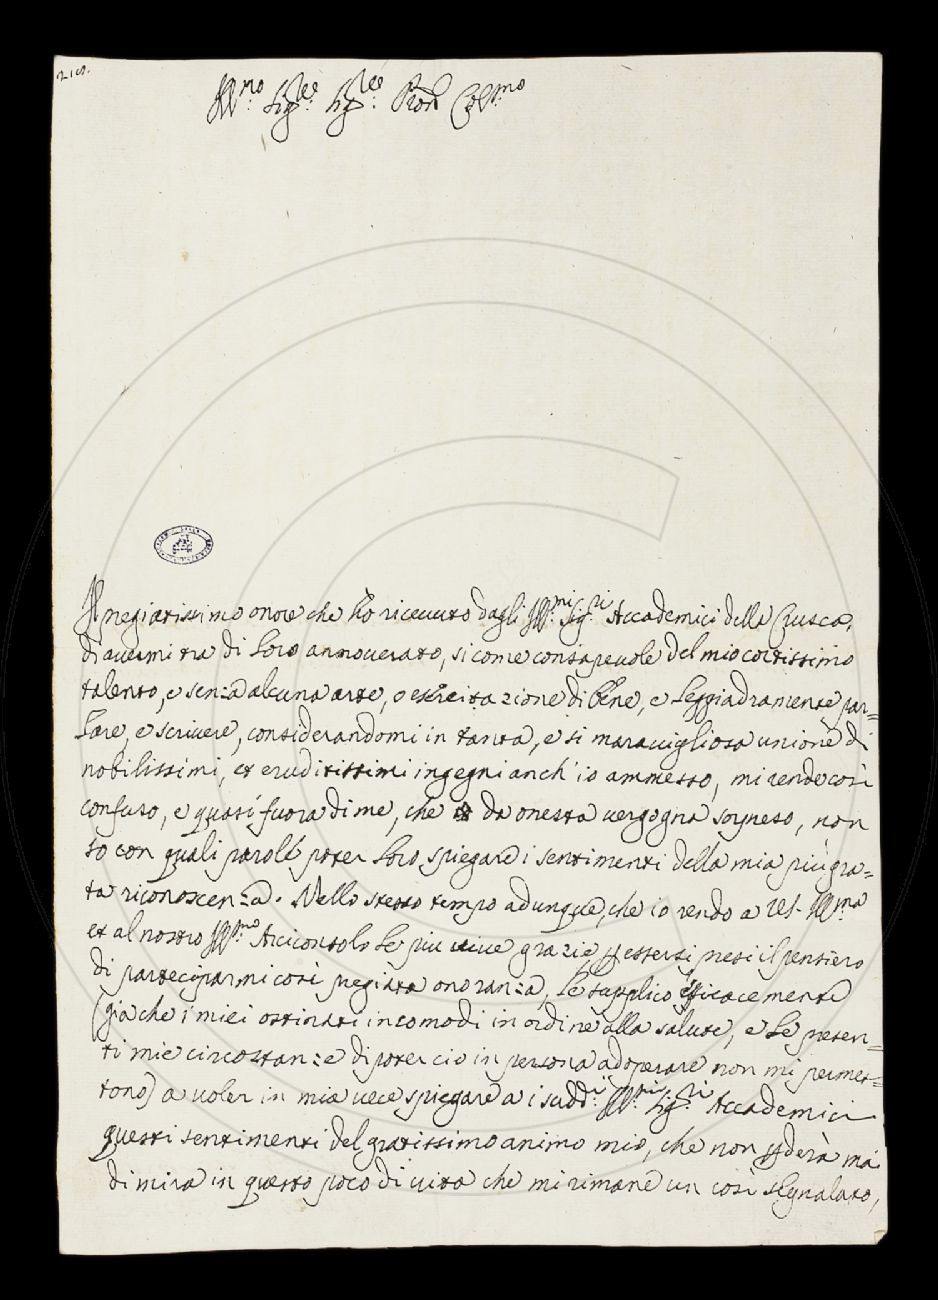 Ill:mo Sig:re Sig:re Pron Col:mo
Il pregiatissimo onore che hò riceuuto dagli Ill:mi Sig:ri Accademici della Crusca,
di auermi tra di loro annouerato, si come consapeuole del mio cortissimo
talento, e senza alcuna arte, o esercitazione di bene, e leggiadramente par=
lare, e scriuere, considerandomi in tanta, e si marauigliosa unione di
nobilissimi, et eruditissimi ingegni anch'io ammesso, mi rende così
confuso, e quasi fuora di me, che da onesta uergogna sorpreso, non
so con quali parole poter loro spiegare i sentimenti della mia più gra=
ta riconoscenza. Nello stesso tempo adunque, che io rendo a VS. Ill:ma
et al nostro Ill:mo Arciconsolo le più uiue grazie p essersi presi il pensiero
di parteciparmi così pregiata onoranza, le supplico efficacemente
(già che i miei ostinati incomodi in ordine alla salute, e le presen=
ti mie circostanze di poter cio in persona adoperare non mi permet=
tono) a uoler in mia uece spiegare a i sudd:i Ill:mi Sig:ri Accademici
questi sentimenti del gratissimo animo mio, che non pderà mai
di mira in questo poco di uita che mi rimane un così segnalato,